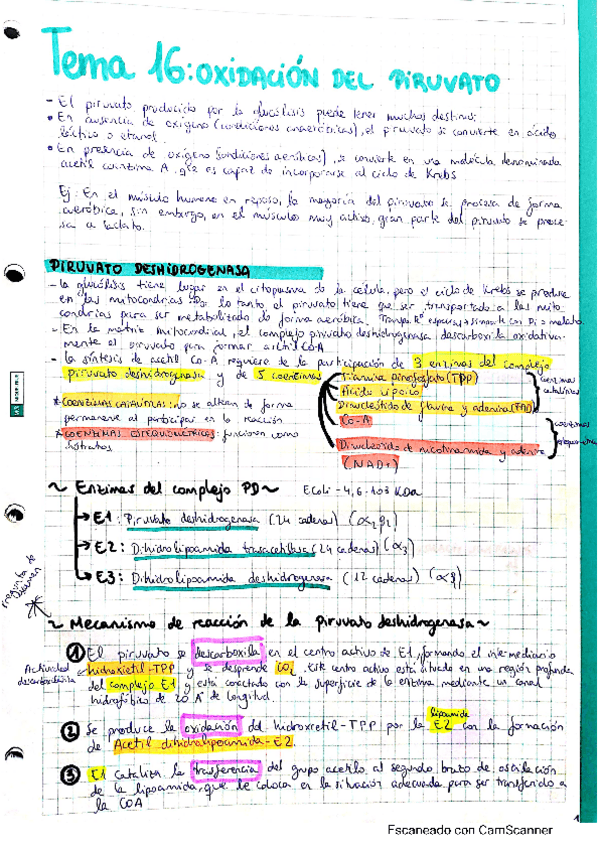 Tema 16: OXIDACIÓN DEL PIRUVATO
- El piruvato producido por la glucólisis puede tener muchos destinos:
• En ausencia de oxígeno (condiciones anaeróbicas), el piruvato se convierte en ácido
láctico o etanol.
• En presencia de oxígeno (condiciones aeróbicas), se convierte en una molécula denominada
acetil coenzima A, que es capaz de incorporarse al ciclo de Krebs
Ej: En el músculo humano en reposo, la mayoría del piruvato se procesa de forma
aeróbica, sin embargo, en el músculos muy activo, gran parte del piruvato se proce-
sa a lactato.
PIRUVATO DESHIDROGENASA
- La glucólisis tiene lugar en el citoplasma de la célula, pero el ciclo de Krebs se produce
en las mitocondrias Por lo tanto, el piruvato tiene que ser transportado a las mito
condrias para ser metabolizado de forma aeróbica.
- En la matriz mitocondrial, el complejo piruvato deshidrogenasa descarboxila oxidativa-
mente el piruvato para formar acetil CoA
- La síntesis de acetil Co-A requiere de la participación de 3 enzimas del complejo
piruvato deshidrogenasa y de 5 coenzimas
Tiamina pirofosfato (TPP)
Ácido lipoico
Dinucleótido de flavina y adenina (FAD)
coenzimas
catalíticas
* COENZIMAS CATALÍTICAS: no se alteran de forma
permanente al participar en la reacción
* COENZIMAS ESTEQUIOMÉTRICAS: funcionan como
sustratos
Co-A
Dinucleótido de nicotinamida y adenina
(NAD+)
coenzimas
~ Enzimas del complejo PD ~ E.Coli - 4,6·103 KDa
E1: Piruvato deshidrogenasa (24 cadenas)
E2: Dihidrolipoamida trasacetilasa (24 cadenas) (α3)
E3: Dihidrolipoamida deshidrogenasa (12 cadenas)
Pregunta de
~ Mecanismo de reacción de la piruvato deshidrogenasa ~
① El piruvato se descarboxila en el centro activo de E1, formando el intermediario
Actividad
descarboxilasa
hidroxietil-TPP y se desprende CO2. Este centro activo está situado en una región profunda
del complejo E1 y está conectado con la superficie de la enzima mediante un canal
hidrofóbico de 20 Å de longitud.
lipoamida
② Se produce la oxidación del hidroxietil-TPP por la E2 con la formación
de Acetil dihidrolipoamida-E2.
③ E1 cataliza la transferencia del grupo acetilo al segundo brazo de oscilación
de la lipoamida, que le coloca en la situación adecuada para ser transferido a
la COA
1
Escaneado con CamScanner